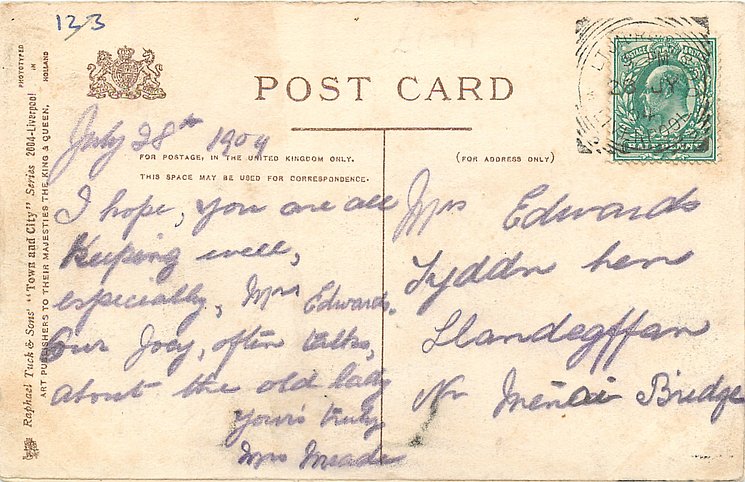 123
POST CARD
July 28th 1904
FOR POSTAGE, IN THE UNITED KINGDOM ONLY.
THIS SPACE MAY BE USED FOR CORRESPONDENCE.
(FOR ADDRESS ONLY)
I hope, you are all
Keeping well,
especially, Mrs Edwards.
Our Joey, often talks,
about the old lady
yours truly
Mrs Meade
Mrs Edwards
Tyddn hen
Llandegffan
Nr Menai Bridge
PHOTOTYPED
IN
HOLLAND
Raphael Tuck & Sons' "Town and City" Series 2004-Liverpool
ART PUBLISHERS TO THEIR MAJESTIES THE KING & QUEEN.
LIVERPOOL
28 JY
04
HALFPENNY